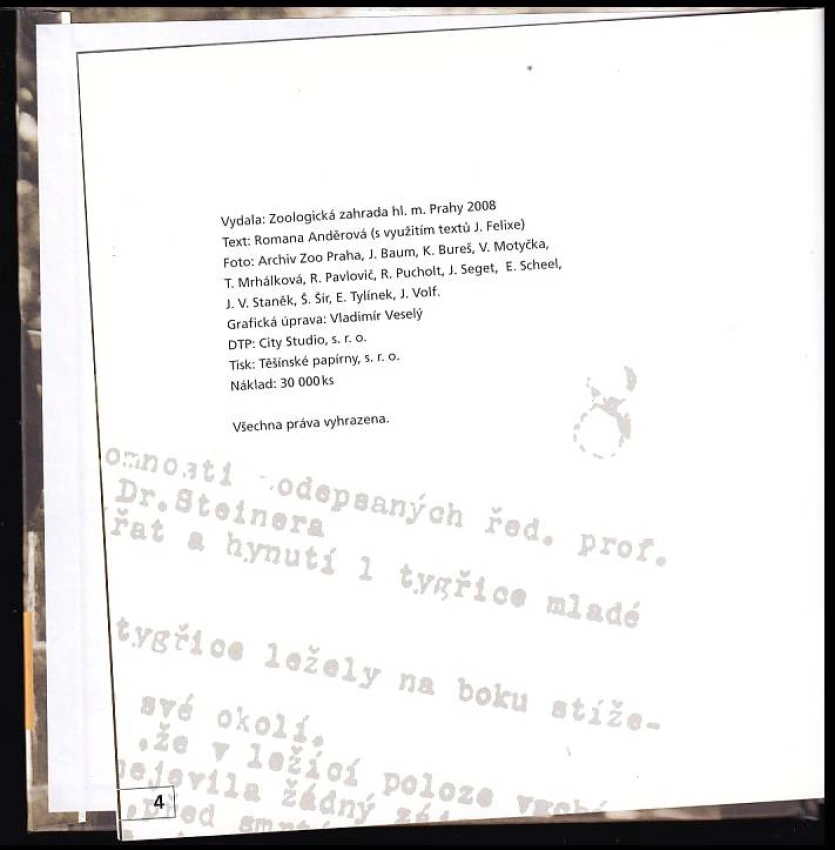 Vydala: Zoologická zahrada hl. m. Prahy 2008
Text: Romana Anděrová (s využitím textů J. Felixe)
Foto: Archiv Zoo Praha, J. Baum, K. Bureš, V. Motyčka,
T. Mrhálková, R. Pavlovič, R. Pucholt, J. Seget, E. Scheel,
J. V. Staněk, Š. Šír, E. Tylínek, J. Volf.
Grafická úprava: Vladimír Veselý
DTP: City Studio, s. r. o.
Tisk: Těšínské papírny, s. r. o.
Náklad: 30 000 ks
Všechna práva vyhrazena.
odepsaných řed. prof.
Dr. Steinera
a hynutí 1 tygřice mladé
tygřice ležely na boku stíže-
své okolí.
,že v ležící poloze
nejevila žádný
4